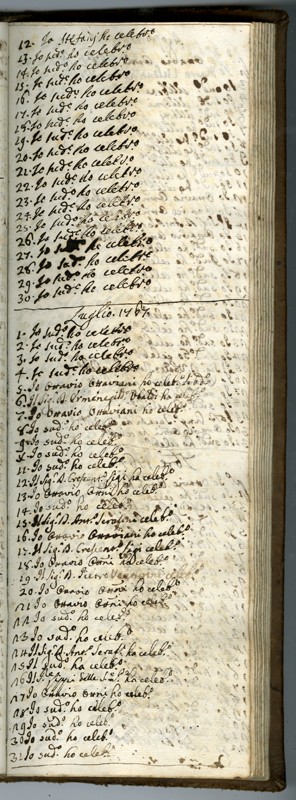 12. Io Stefanj ho celebro
13. Io sudo. ho celebro
14. Io sudo. ho celebro
15. Io sudo. ho celebro
16. Io sudo. ho celebro
17. Io sudo. ho celebro
18. Io sudo. ho celebro
19. Io sudo. ho celebro
20. Io sudo. ho celebro
21. Io sudo. ho celebro
22. Io sudo. ho celebro
23. Io sudo. ho celebro
24. Io sudo. ho celebro
25. Io sudo. ho celebro
26. Io sudo. ho celebro
27. Io sudo. ho celebro
28. Io sudo. ho celebro
29. Io sudo. ho celebro
30. Io sudo. ho celebro
Luglio. 1767
1. Io sudo. ho celebro
2. Io sudo. ho celebro
3. Io sudo. ho celebro
4. Io sudo. ho celebro
5. Io Ottavio Ottaviani ho celebo.
6. Il Sigr. D. ha celebo.
7. Io Ottavio Ottaviani ho celebo.
8. Io sudo. ho celebo.
9. Io sudo. ho celebo.
Io sudo. ho celebo.
11. Io sudo. ho celebo.
12. Il Sigr. D. Crescenzo. Gigi ha celebo.
13. Io Ottavio Ottni ho celebo.
14. Io sudo. ho celebo.
15. Il Sigr. D. Anto. Serafini celebo.
16. Io Ottavio Ottaviani ho celebo.
17. Il Sigr. D. Crescenzo. Gigi celebo.
18. Io Ottavio Ottni ho celebo.
19. Il Sigr. D. Pietro
20. Io Ottavio Ottni ho celebo.
21. Io Ottavio Ottni ho celebo.
22. Io sudo. ho celebo.
23. Io sudo. ho celebo.
24. Il Sigr. D. Anto. Seraf. ha celebo.
25. Il sudo. ho celebo.
26. Il ha celebo.
27. Io Ottavio Ottni ho celebo.
28. Io sudo. ho celebo.
29. Io sudo. ho celebo.
30. Io sudo. ho celebo.
31. Io sudo. ho celebo.